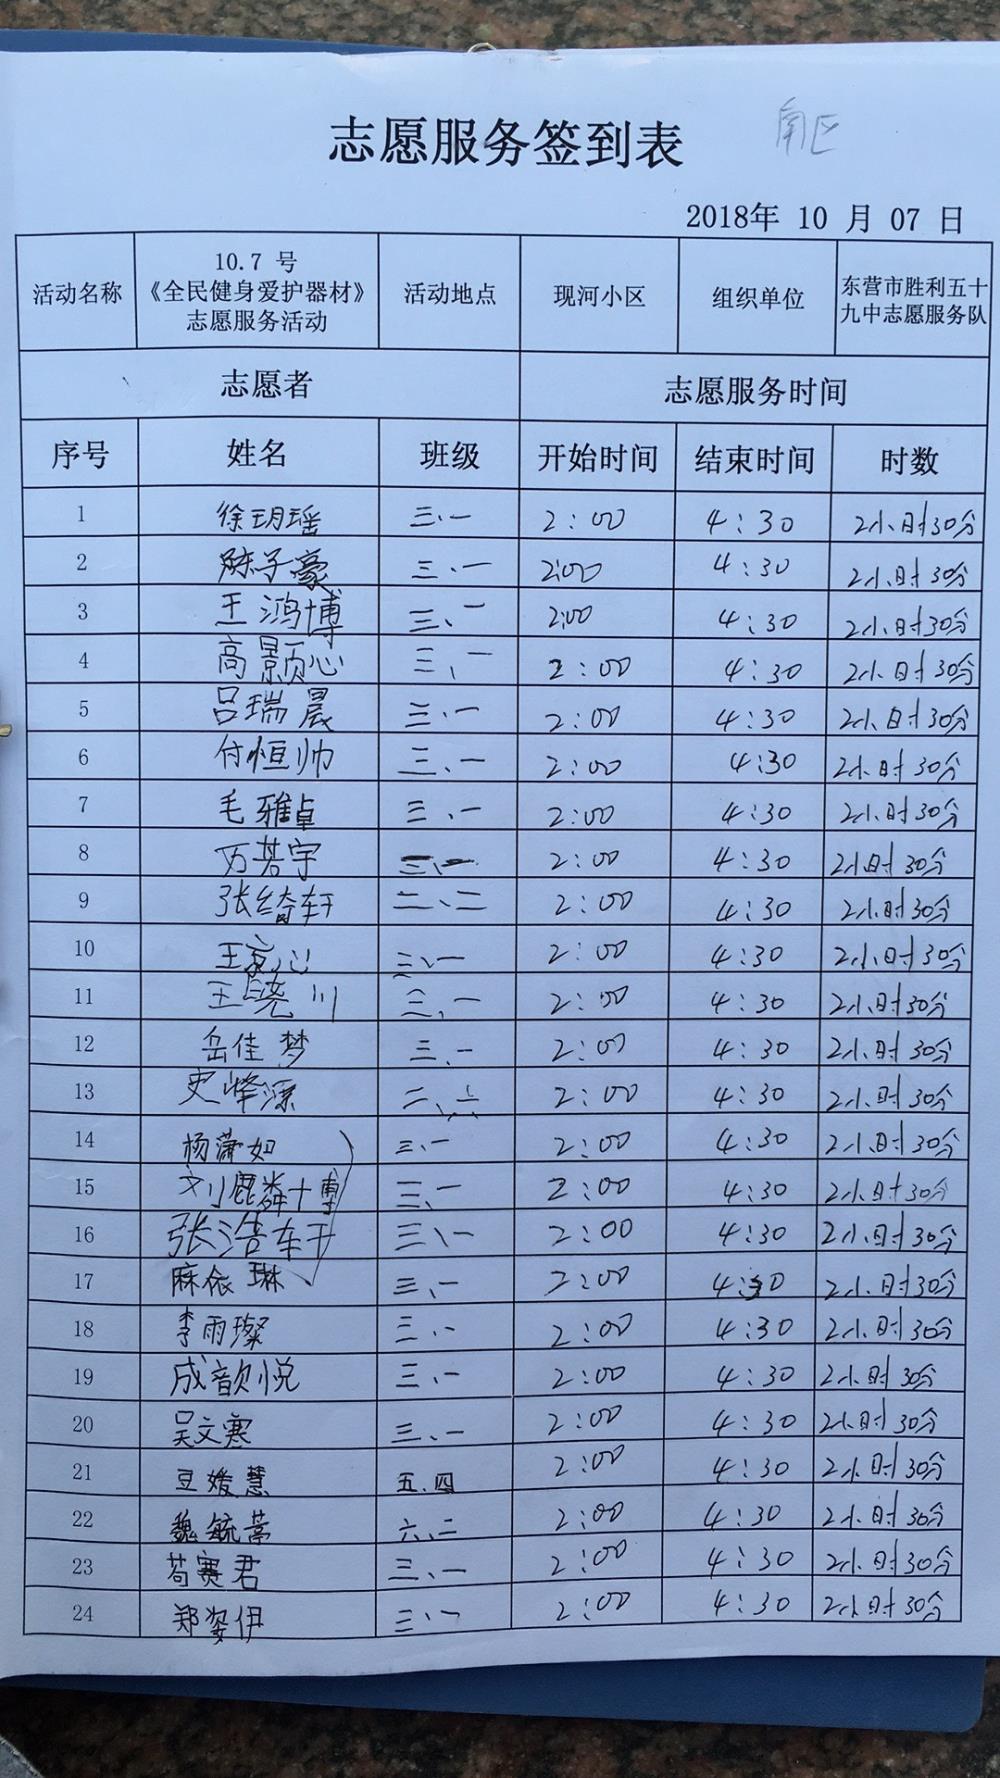 志愿服务签到表 南区
2018年 10 月 07 日
活动名称 10.7 号《全民健身爱护器材》志愿服务活动 活动地点 现河小区 组织单位 东营市胜利五十九中志愿服务队
志愿者 志愿服务时间
序号 姓名 班级 开始时间 结束时间 时数
1 徐玥瑶 三、一 2:00 4:30 2小时30分
2 陈子豪 三、一 2:00 4:30 2小时30分
3 王鸿博 三、一 2:00 4:30 2小时30分
4 高景颐心 三、一 2:00 4:30 2小时30分
5 吕瑞晨 三、一 2:00 4:30 2小时30分
6 付恒帅 三、一 2:00 4:30 2小时30分
7 毛雅卓 三、一 2:00 4:30 2小时30分
8 万若宇 三、一 2:00 4:30 2小时30分
9 张绮轩 二、二 2:00 4:30 2小时30分
10 三、一 2:00 4:30 2小时30分
11 王晓川 三、一 2:00 4:30 2小时30分
12 岳佳梦 三、一 2:00 4:30 2小时30分
13 史峰源 二、六 2:00 4:30 2小时30分
14 杨潇如 三、一 2:00 4:30 2小时30分
15 刘麟博 三、一 2:00 4:30 2小时30分
16 张浩轩 三、一 2:00 4:30 2小时30分
17 麻依琳 三、一 2:00 4:30 2小时30分
18 李雨璨 三、一 2:00 4:30 2小时30分
19 成歆悦 三、一 2:00 4:30 2小时30分
20 吴文寒 三、一 2:00 4:30 2小时30分
21 豆媛慧 五、四 2:00 4:30 2小时30分
22 魏毓 六、二 2:00 4:30 2小时30分
23 苟赛君 三、一 2:00 4:30 2小时30分
24 郑姿伊 三、一 2:00 4:30 2小时30分